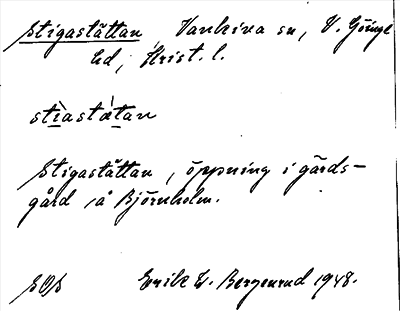 Stigastättan, Vankiva sn, V. Göinge
hd, Krist. l.
stìastǽtan
Stigastättan, öppning i gärds-
gård å Björnholm.
Erik W. Bergenrud 1948.